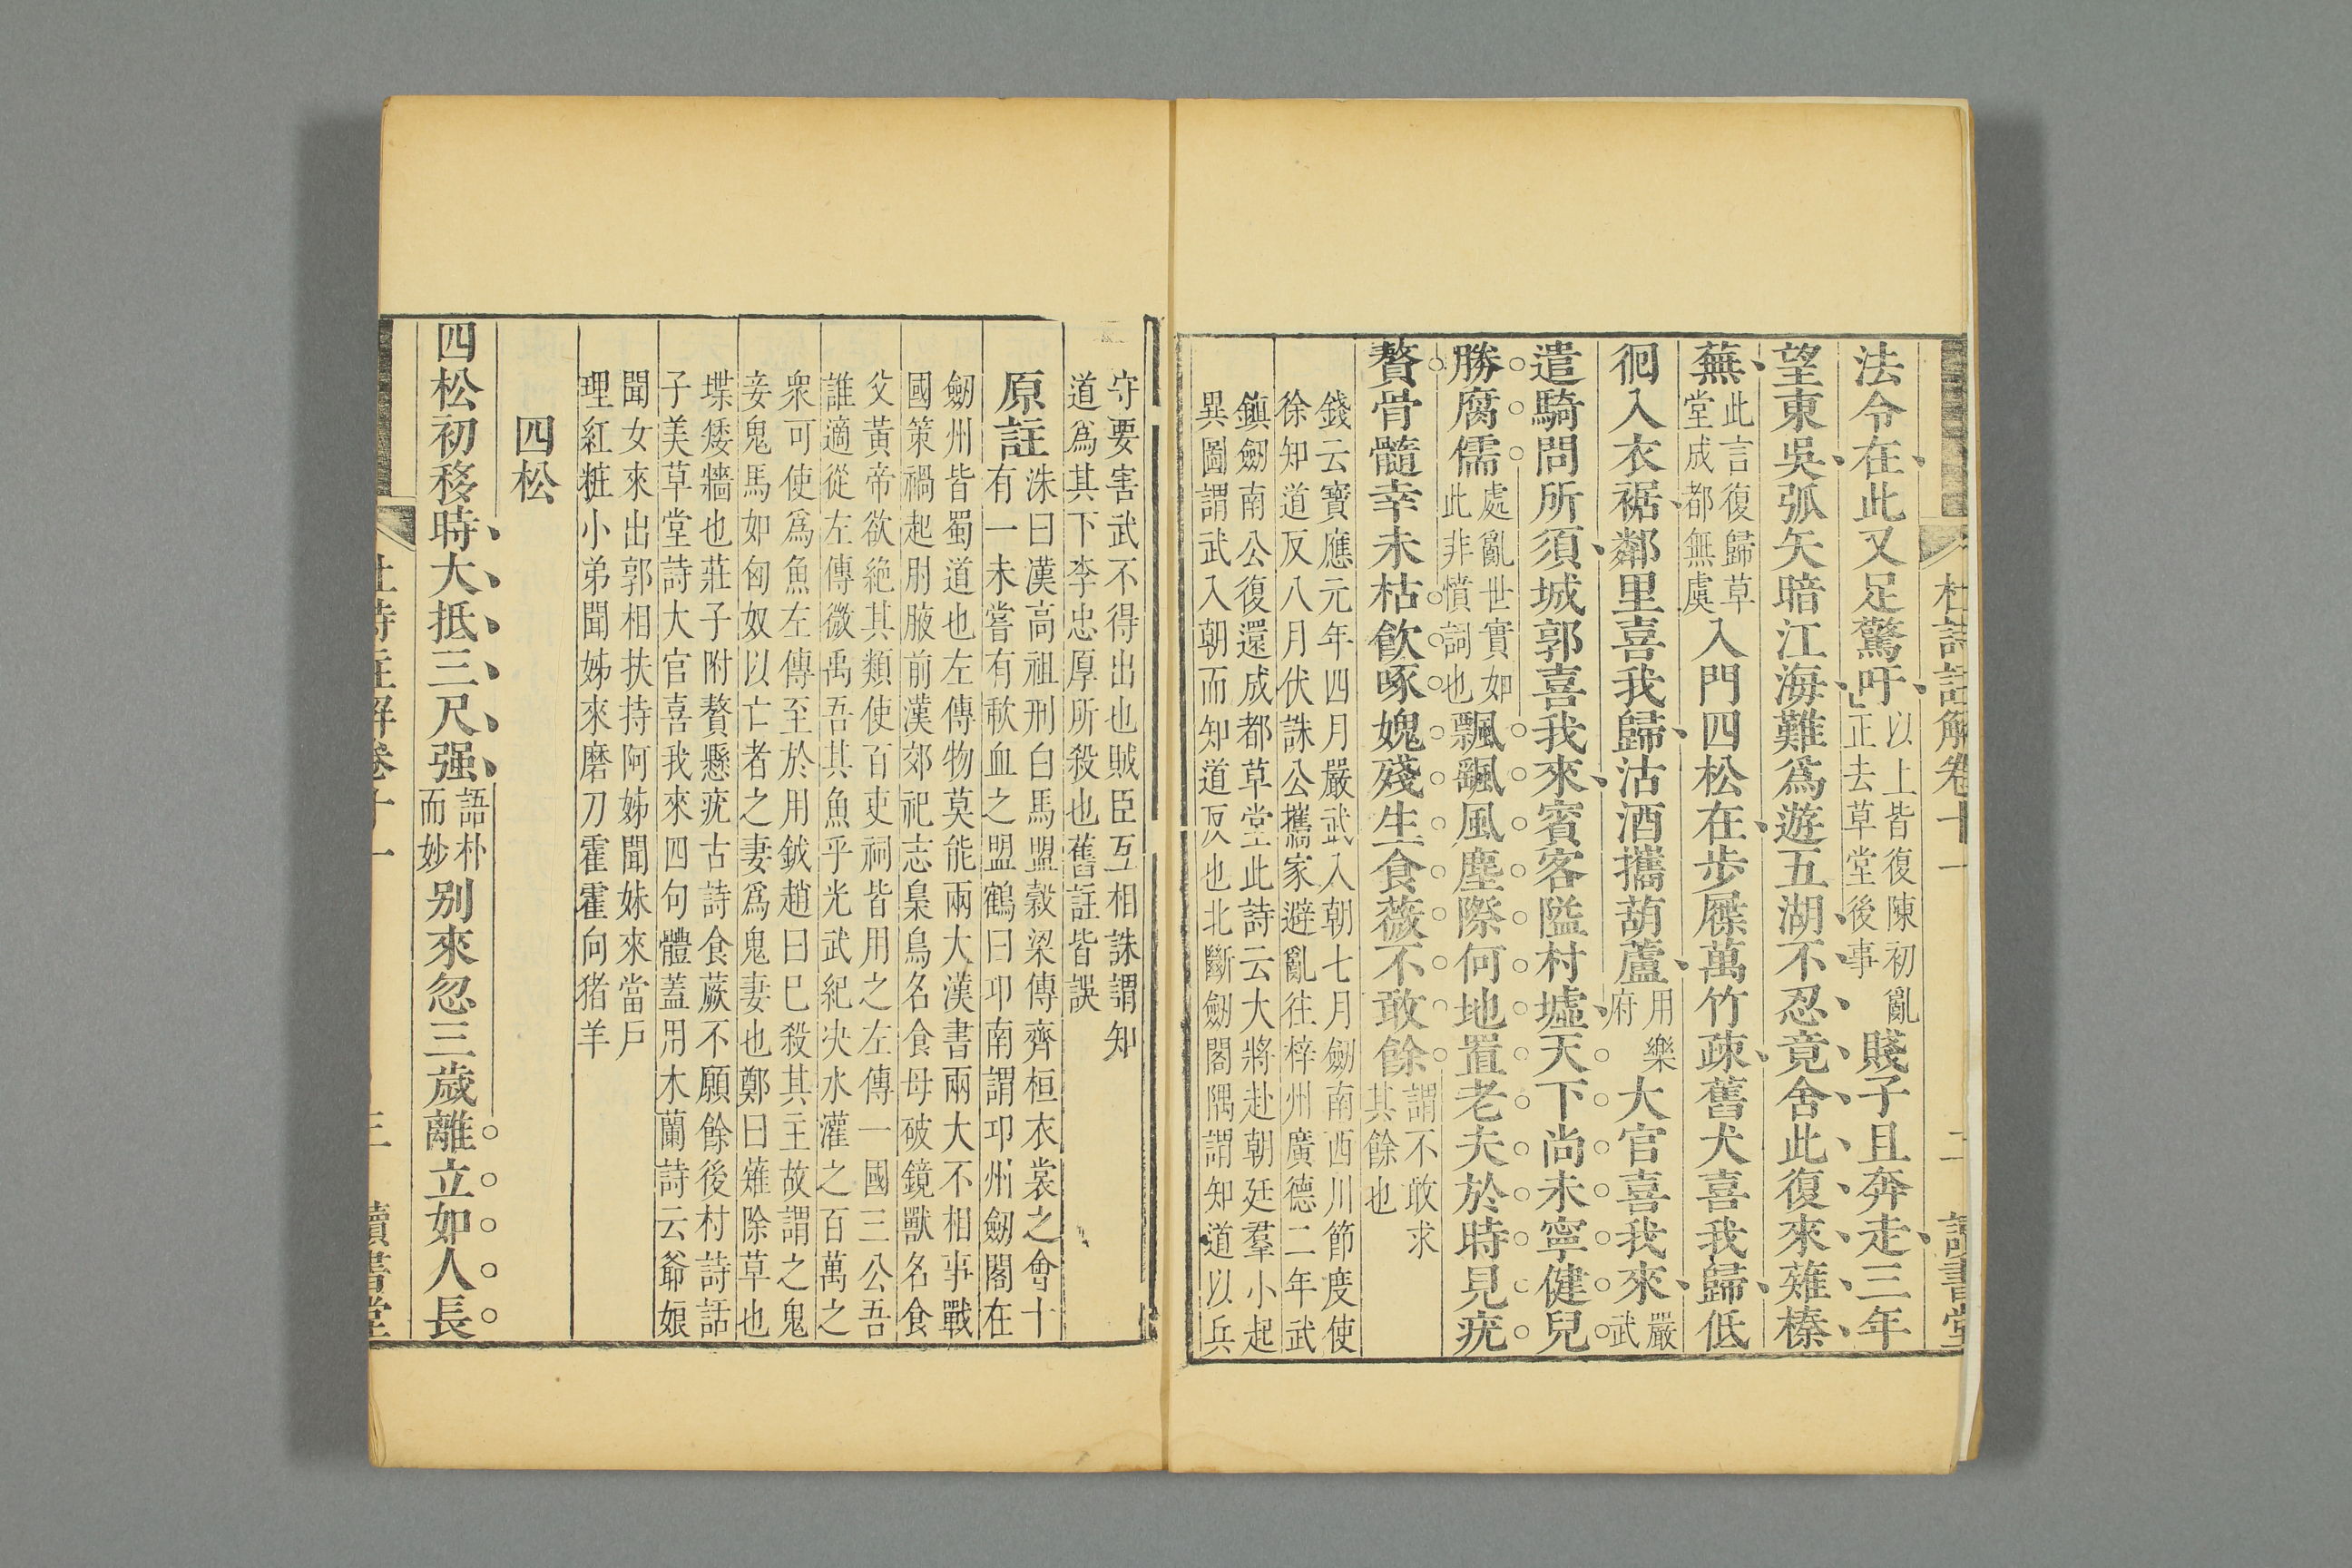 杜詩註解卷十一 二 讀書堂
法令在此又足驚吁以上皆復陳初亂正去草堂後事賤子且奔走三年
望東吳弧矢暗江海難爲遊五湖不忍竟舍此復來薙榛
蕪此言復歸草堂成都無虞入門四松在步屧萬竹疎舊犬喜我歸低
徊入衣裾鄰里喜我歸沽酒攜葫蘆用樂府大官喜我來嚴武
遣騎問所須城郭喜我來賓客隘村墟天下尚未寧健兒
勝腐儒處亂世實如此非憤詞也飄颻風塵際何地置老夫於時見疣
贅骨髓幸未枯飲啄媿殘生食薇不敢餘謂不敢求其餘也
錢云寶應元年四月嚴武入朝七月劒南西川節度使
徐知道反八月伏誅公攜家避亂往梓州廣德二年武
鎮劒南公復還成都草堂此詩云大將赴朝廷羣小起
異圖謂武入朝而知道反也北斷劒閣隅謂知道以兵
守要害武不得出也賊臣互相誅謂知
道爲其下李忠厚所殺也舊註皆誤
原註洙曰漢高祖刑白馬盟穀梁傳齊桓衣裳之會十
有一未嘗有歃血之盟鶴曰卭南謂卭州劒閣在
劒州皆蜀道也左傳物莫能兩大漢書兩大不相事戰
國策禍起肘腋前漢郊祀志梟鳥名食母破鏡獸名食
父黃帝欲絶其類使百吏祠皆用之左傳一國三公吾
誰適從左傳微禹吾其魚乎光武紀决水灌之百萬之
衆可使爲魚左傳至於用鉞趙曰巳殺其主故謂之鬼
妾鬼馬如匈奴以亡者之妻爲鬼妻也鄭曰薙除草也
堞矮牆也莊子附贅懸疣古詩食蕨不願餘後村詩話
子美草堂詩大官喜我來四句體蓋用木蘭詩云爺娘
聞女來出郭相扶持阿姊聞妹來當戶
理紅粧小弟聞姊來磨刀霍霍向猪羊
四松
四松初移時大抵三尺强語朴而妙别來忽三歲離立如人長
杜詩註解卷十一 三 讀書堂